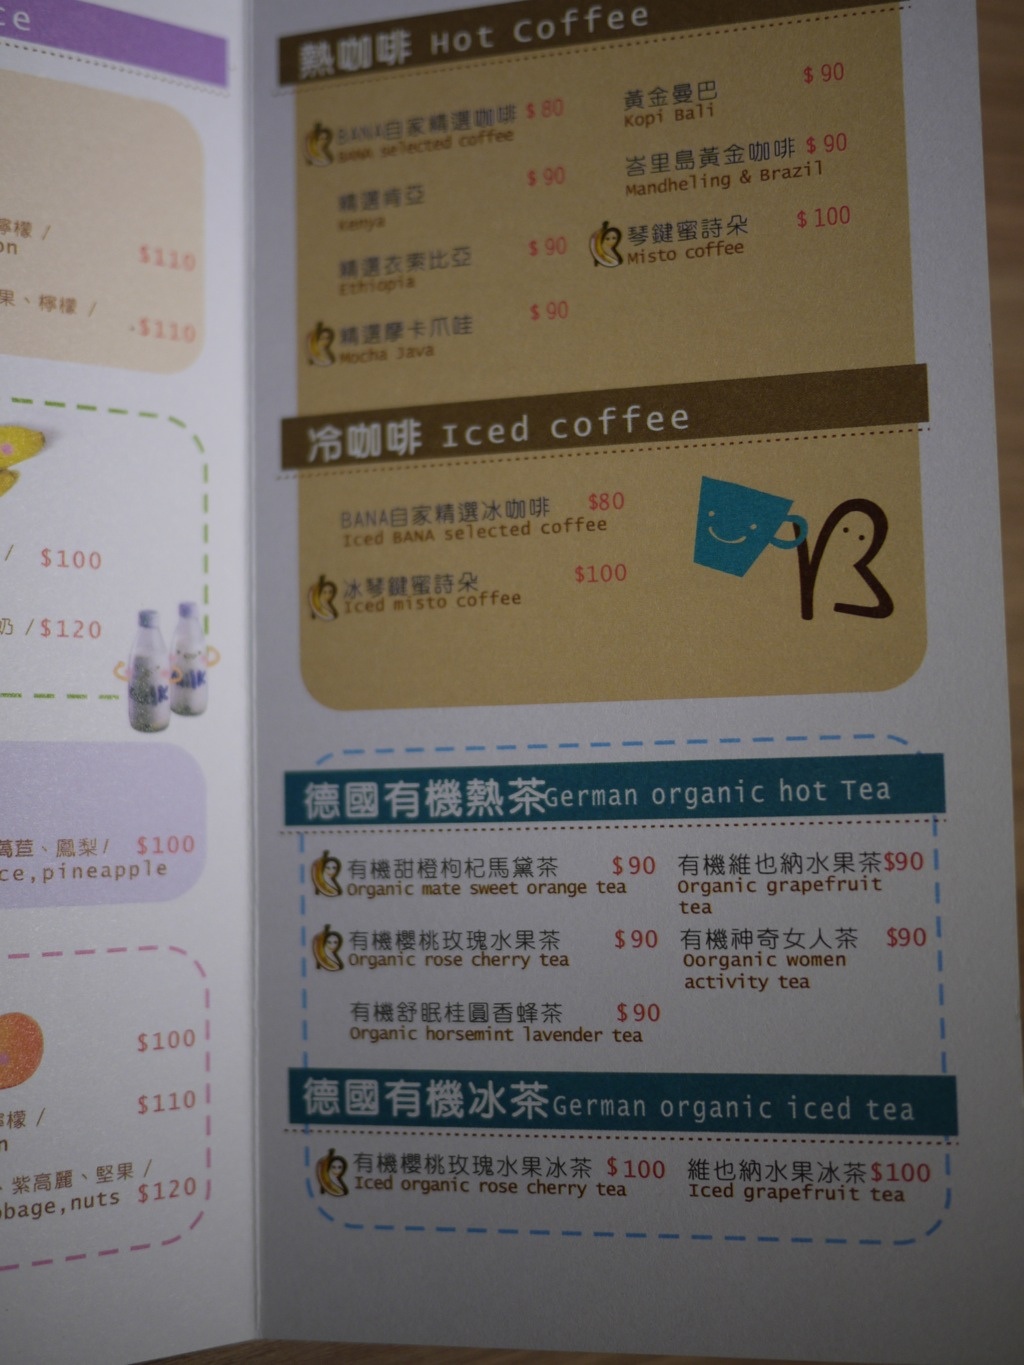 ce
檸檬 /
on
$110
果、檸檬 /
$110
/ $100
奶 / $120
萵苣、鳳梨/ $100
ce,pineapple
$100
檸檬 / $110
n
、紫高麗、堅果 /
bbage,nuts $120
熱咖啡 Hot Coffee
BANA自家精選咖啡 $80
BANA selected coffee
精選肯亞 $90
Kenya
精選衣索比亞 $90
Ethiopia
精選摩卡爪哇 $90
Mocha Java
黃金曼巴 $90
Kopi Bali
峇里島黃金咖啡 $90
Mandheling & Brazil
琴鍵蜜詩朵 $100
Misto coffee
冷咖啡 Iced coffee
BANA自家精選冰咖啡 $80
Iced BANA selected coffee
冰琴鍵蜜詩朵 $100
Iced misto coffee
德國有機熱茶German organic hot Tea
有機甜橙枸杞馬黛茶 $90
Organic mate sweet orange tea
有機櫻桃玫瑰水果茶 $90
Organic rose cherry tea
有機舒眠桂圓香蜂茶 $90
Organic horsemint lavender tea
有機維也納水果茶$90
Organic grapefruit
tea
有機神奇女人茶 $90
Oorganic women
activity tea
德國有機冰茶German organic iced tea
有機櫻桃玫瑰水果冰茶 $100
Iced organic rose cherry tea
維也納水果冰茶$100
Iced grapefruit tea